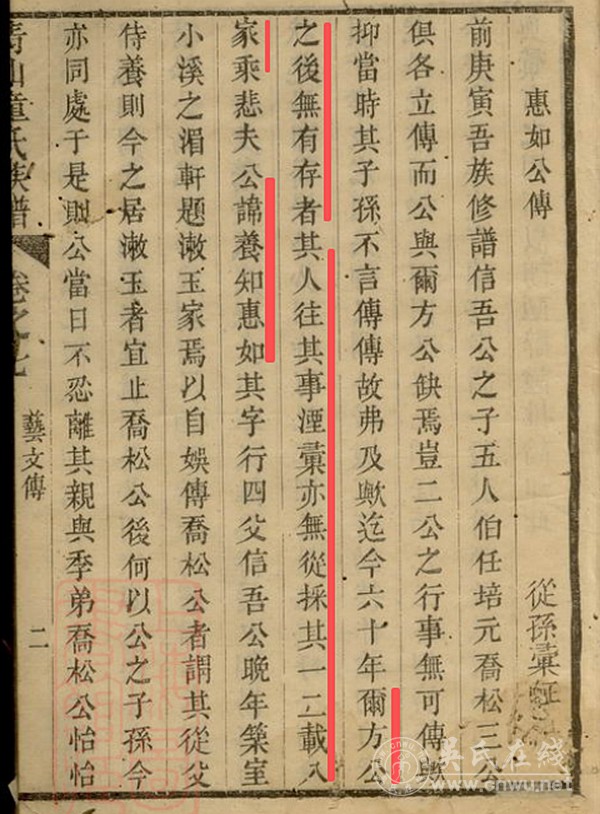 惠如公傳
從孫彙虹
前庚寅吾族修譜信吾公之子五人伯任培元喬松三公
俱各立傳而公與爾方公缺焉豈二公之行事無可傳歟
抑當時其子孫不言傳傳故弗及歟迄今六十年爾方公
之後無有存者其人往其事湮彙亦無從採其一二載入
家乘悲夫公諱養知惠如其字行四父信吾公晚年築室
小溪之湄軒題漱玉家焉以自娛傳喬松公者謂其從父
侍養則今之居漱玉者宜止喬松公後何以公之子孫今
亦同處于是則公當日不忍離其親與季弟喬松公怡怡
青山童氏族譜
卷之七
藝文傳
二
吴氏在线
www.cnwu.net